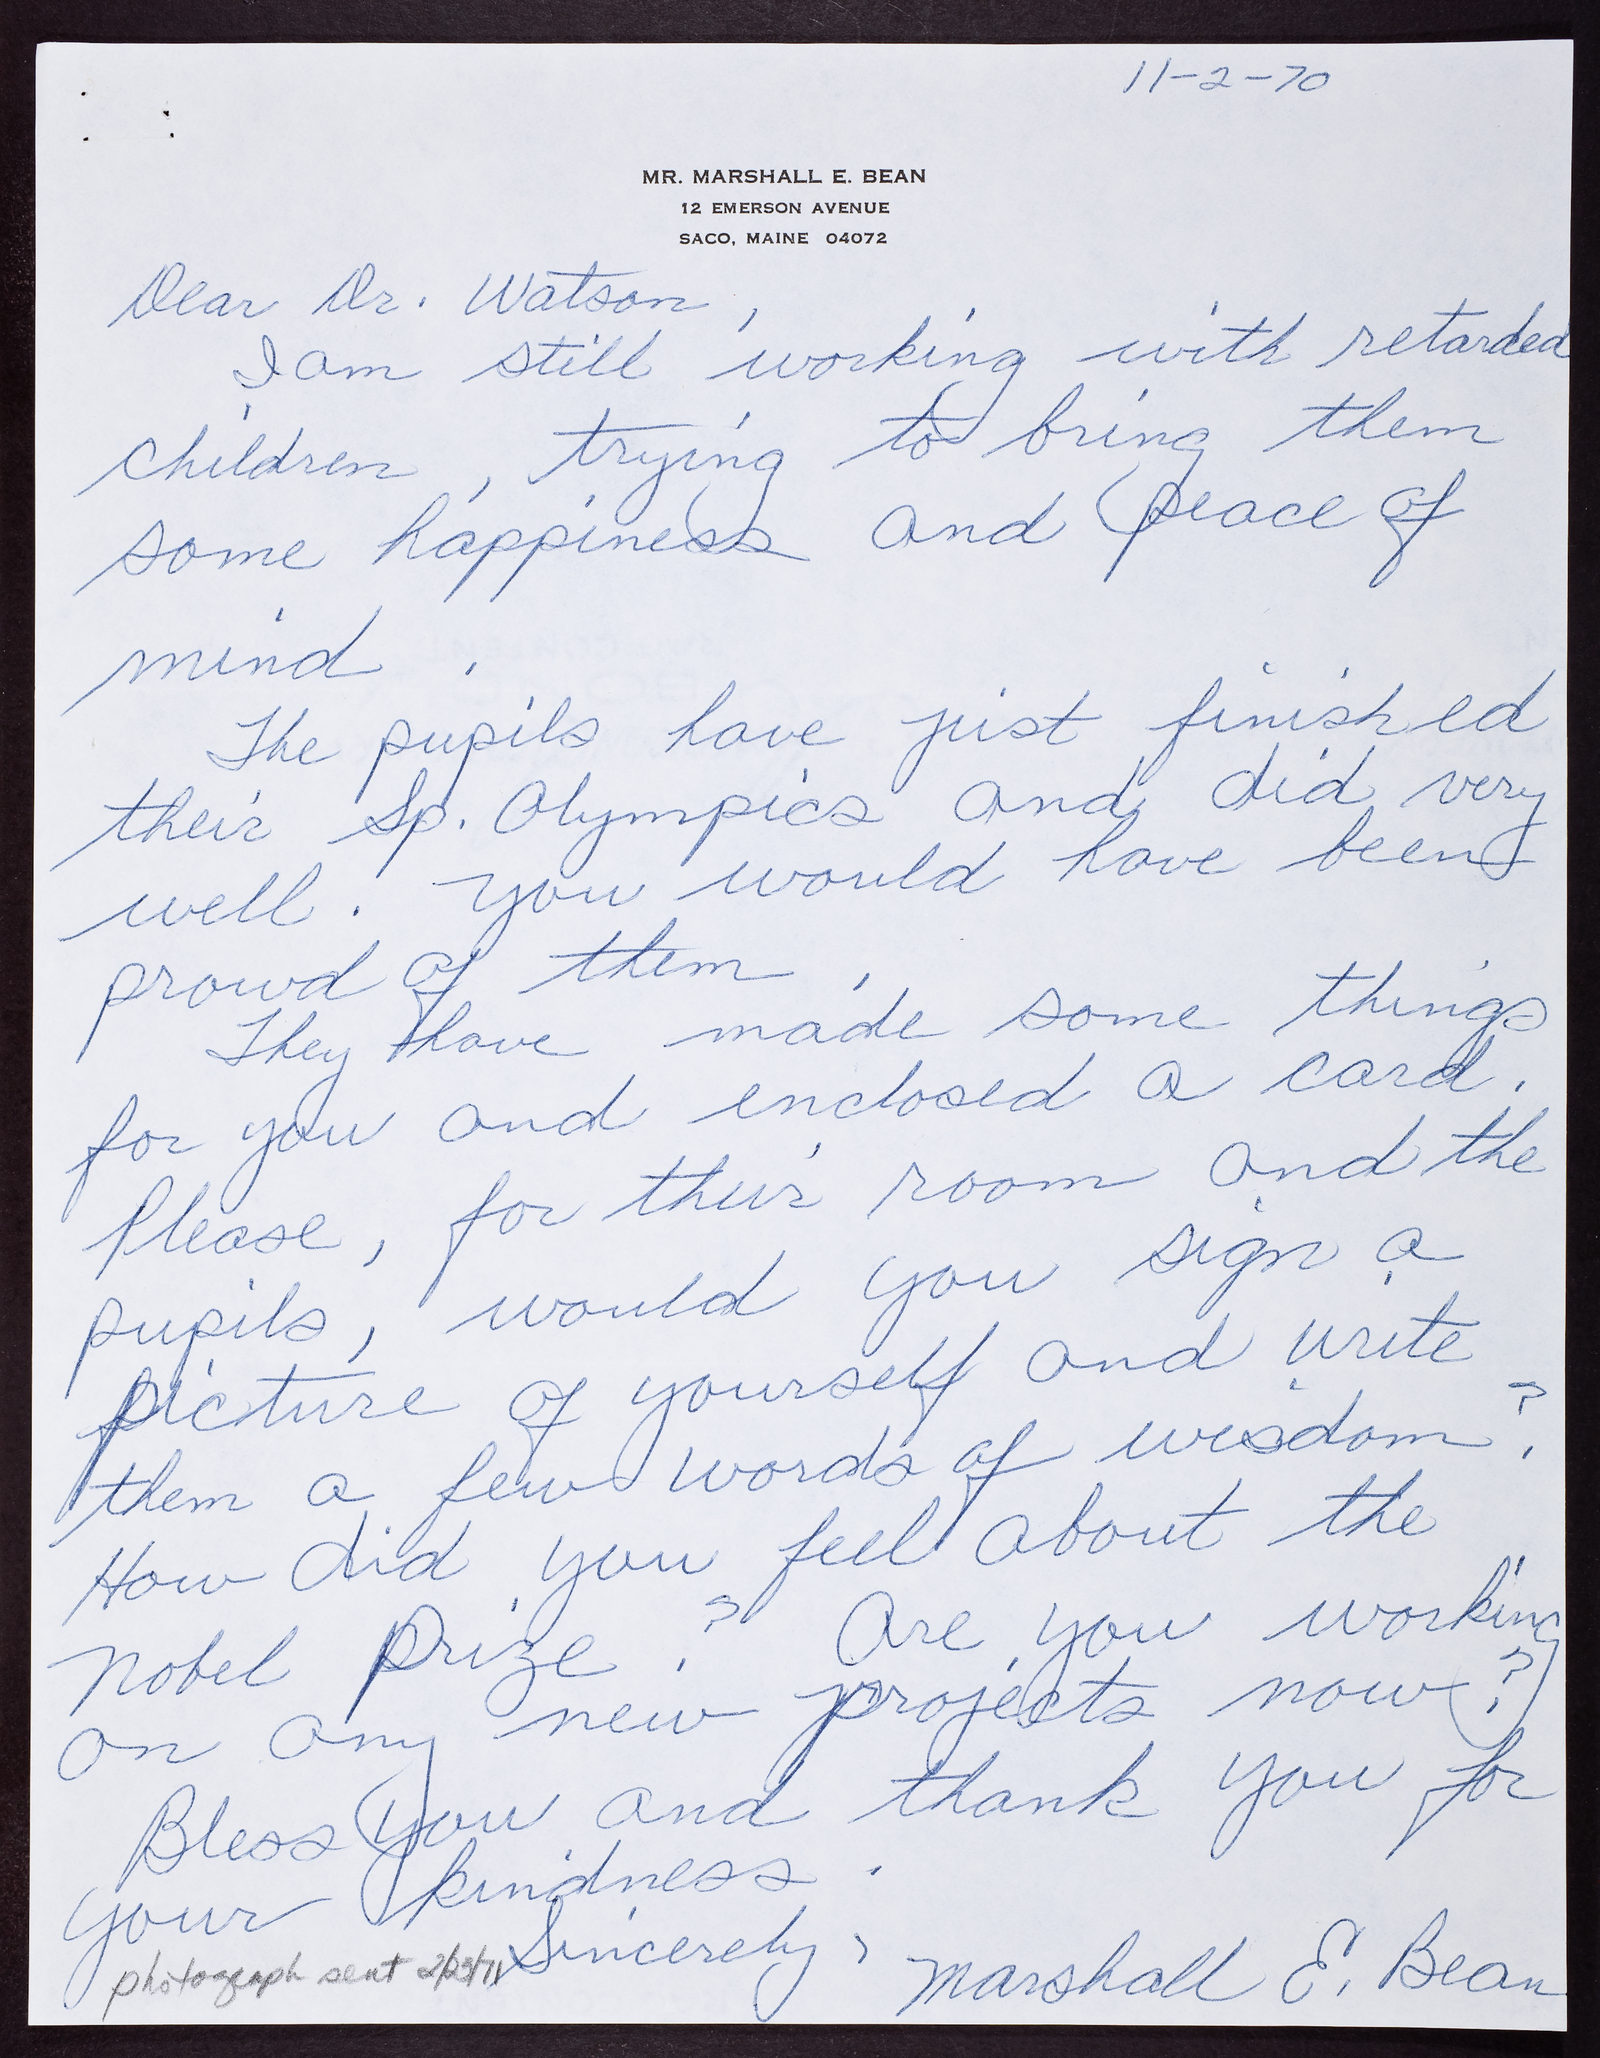 11-2-70
MR. MARSHALL E. BEAN
12 EMERSON AVENUE
SACO, MAINE 04072
Dear Dr. Watson,
I am still working with retarded
children, trying to bring them
some happiness and peace of
mind.
The pupils have just finished
their Sp. Olympics and did very
well. You would have been
proud of them.
They have made some things
for you and enclosed a card.
Please, for their room and the
pupils, would you sign a
picture of yourself and write
them a few words of wisdom?
How did you feel about the
Nobel Prize? Are you working
on any new projects now?
Bless you and thank you for
your kindness.
Sincerely, Marshall E. Bean
photograph sent 2/23/71